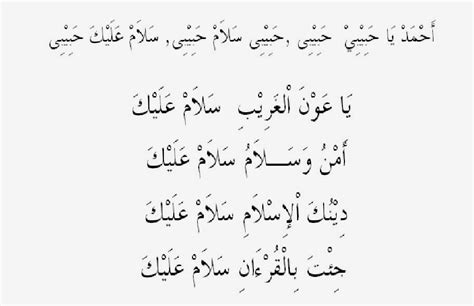 أَحْمَدْ يَا حَبِيْبِيْ حَبِيْبِى ,حَبِيْبِى سَلَامْ حَبِيْبِى, سَلَامْ عَلَيْكَ حَبِيْبِى
يَا عَوْنَ اْلغَرِيْبِ سَلَامْ عَلَيْكَ
أَمْنُ وَسَـــلَامُ سَلَامْ عَلَيْكَ
دِيْنُكَ اْلإِسْلَامِ سَلَامْ عَلَيْكَ
جِئْتَ بِالْقُرْءَانِ سَلَامْ عَلَيْكَ